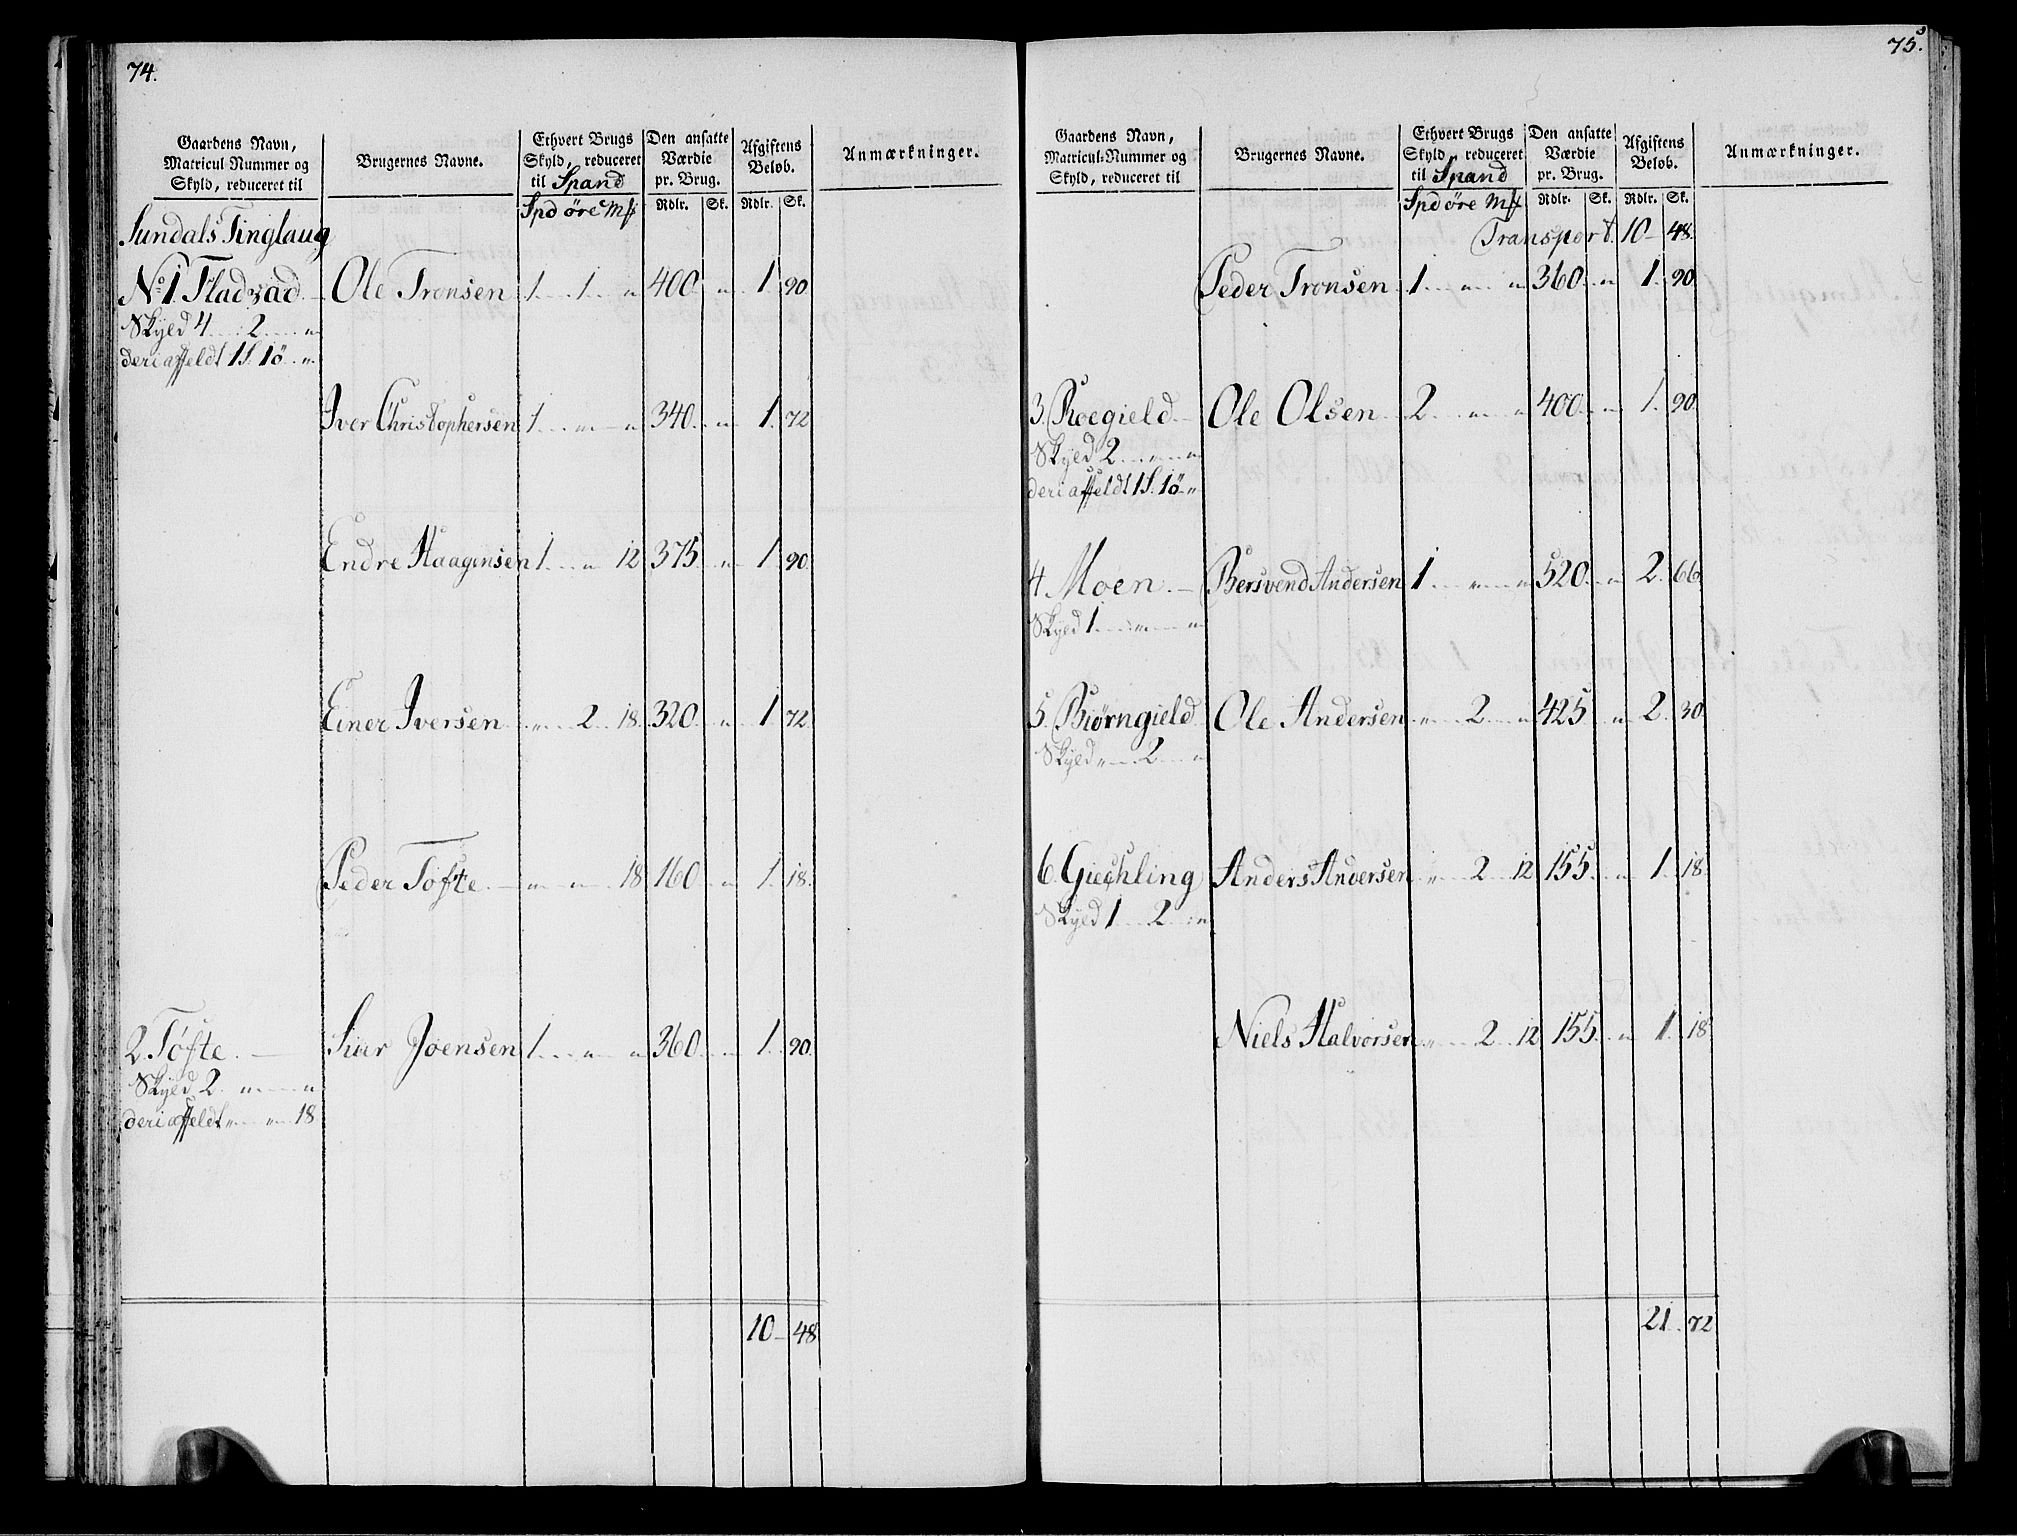 74.
Gaardens Navn, Matricul-Nummer og Skyld, reduceret til
Brugernes Navne.
Ethvert Brugs Skyld, reduceret til Spand
Den ansatte Værdie pr. Brug.
Afgiftens Beløb.
Anmærkninger.
Spd øre Mk Rdlr. Sk. Rdlr. Sk.
Sundals Tinglaug
No 1. Fladvad. Ole Tronsen 1 . . 1 . . " 400 . " 1 . 90
Skyld 4 . . 2 . . "
deri affeldt 1 S. 1 ö . . "
Iver Christophersen 1 . . " . . " 340 . " 1 . 72
Endre Haagensen 1 . . " 12 375 . " 1 . 90
Einer Iversen " . . 2 . 18. 320 . " 1 . 72
Peder Tofte . — " . . " . 18 160 . " 1 . 18
2. Tøfte . — Siur Joensen 1 . . " . . " 360 . . " 1 . 90
Skyld 2 . " . . "
deri affeldt " . . " . 18
10 — 48
75.
Gaardens Navn, Matricul-Nummer og Skyld, reduceret til
Brugernes Navne.
Ethvert Brugs Skyld, reduceret til Spand
Den ansatte Værdie pr. Brug.
Afgiftens Beløb.
Anmærkninger.
Spd øre Mk Rdlr. Sk. Rdlr. Sk.
Transport. 10 — 48.
Peder Tronsen 1 . . " . " 360 . " 1 . 90
3. Roegield. — Ole Olsen 2 . . " . " 400 . " 1 . 90
Skyld 2 . . " . . "
deri affeldt 1 S. 1 ö "
4 Moen. — Bersvend Andersen 1 . . " . . " 520 . " 2 . 66
Skyld 1 . . " . . "
5. Biørngield Ole Andersen " . . 2 . . " 425 . " 2 . 30
Skyld " . . 2 . . "
6. Giechling Anders Andersen " . . 2 . 12 155 . . " 1 . 18
Skyld 1 . . 2 . . "
Niels Halvorsen " . . 2 . 12 155 . . " 1 . 18
21 . 72